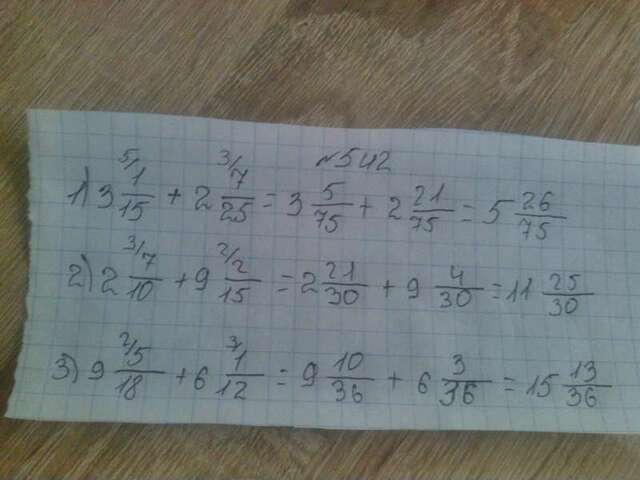 №542
1) 3 5/ 1/15 + 2 3/ 7/25 = 3 5/75 + 2 21/75 = 5 26/75
2) 2 3/ 7/10 + 9 2/ 2/15 = 2 21/30 + 9 4/30 = 11 25/30
3) 9 2/ 5/18 + 6 3/ 1/12 = 9 10/36 + 6 3/36 = 15 13/36